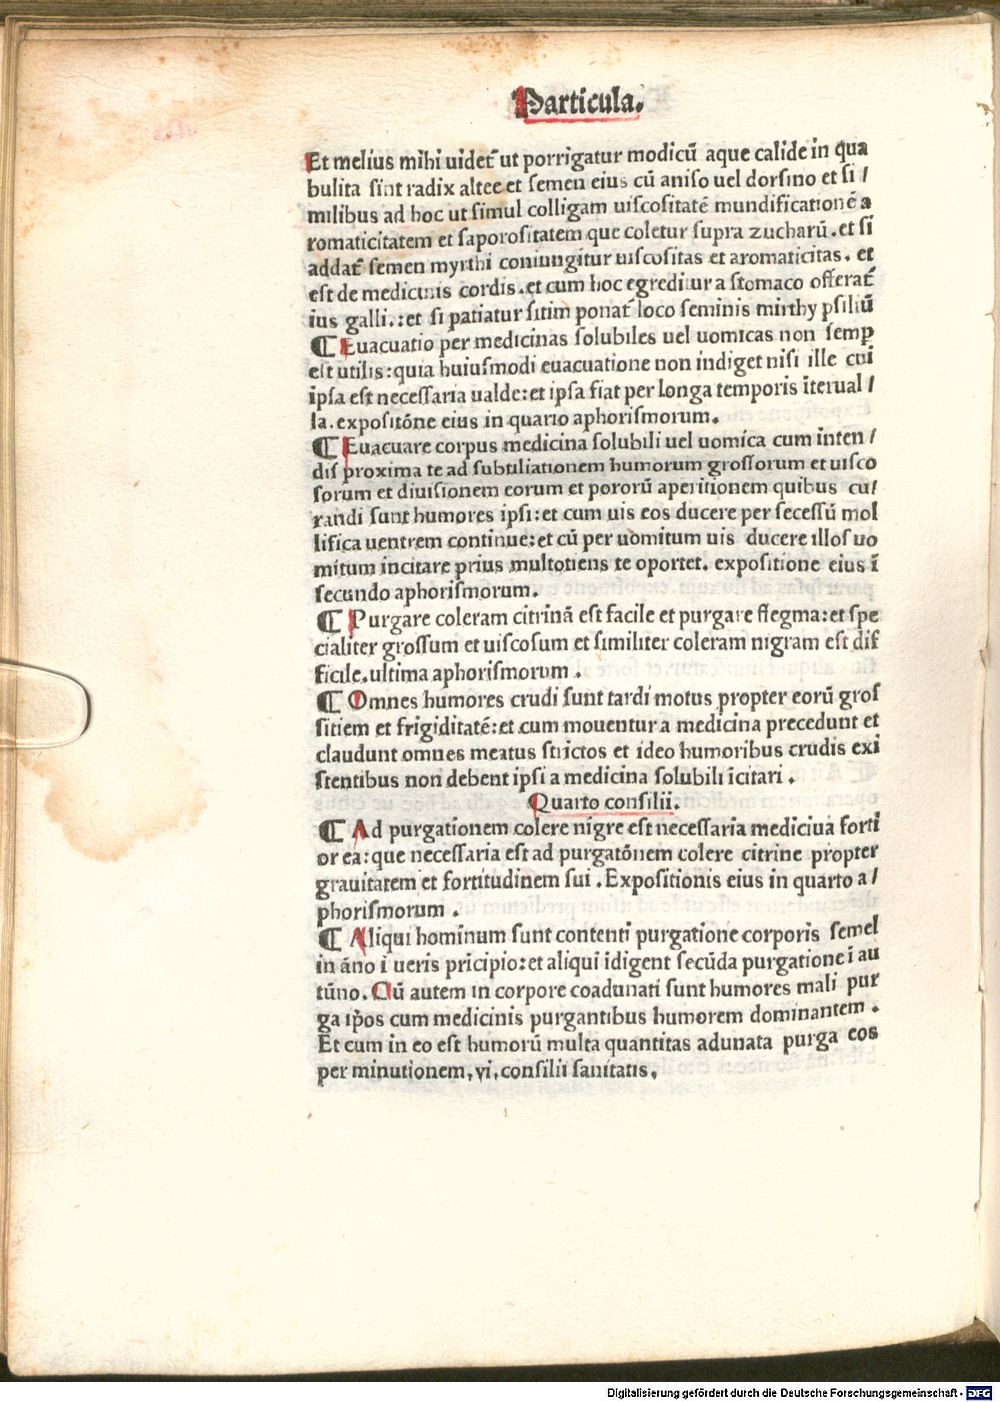 Particula.
Et melius mihi uidet͂ ut porrigatur modicū aque calide in qua
bulita sint radix altee et semen eius cū aniso uel dorsino et si/
milibus ad hoc ut simul colligam uiscositatē mundificationē a
romaticitatem et saporositatem que coletur supra zucharū. et si
addat͂ semen myrthi coniungitur uiscositas et aromaticitas. et
est de medicinis cordis. et cum hoc egreditur a stomaco offerat͂
ius galli.: et si patiatur sitim ponat͂ loco seminis mirthy psiliū
¶ Euacuatio per medicinas solubiles uel uomicas non semꝑ
est utilis: quia huiusmodi euacuatione non indiget nisi ille cui
ipsa est necessaria ualde: et ipsa fiat per longa temporis iterual/
la. expositōne eius in quarto aphorismorum.
¶ Euacuare corpus medicina solubili uel uomica cum inten/
dis proxima te ad subtiliationem humorum grossorum et uisco
sorum et diuisionem eorum et pororū aperitionem quibus cu/
randi sunt humores ipsi: et cum uis eos ducere per secessū mol
lifica uentrem continue: et cū per uomitum uis ducere illos uo
mitum incitare prius multotiens te oportet. expositione eius ī
secundo aphorismorum.
¶ Purgare coleram citrinā est facile et purgare flegma: et spe
cialiter grossum et uiscosum et similiter coleram nigram est dif
ficile. ultima aphorismorum.
¶ Omnes humores crudi sunt tardi motus propter eorū gros
sitiem et frigiditatē: et cum mouentur a medicina precedunt et
claudunt omnes meatus strictos et ideo humoribus crudis exi
stentibus non debent ipsi a medicina solubili īcitari.
Quarto consilii.
¶ Ad purgationem colere nigre est necessaria mediciua forti
or ea: que necessaria est ad purgatōnem colere citrine propter
grauitatem et fortitudinem sui. Expositionis eius in quarto a/
phorismorum.
¶ Aliqui hominum sunt contenti purgatione corporis semel
in āno ī ueris prīcipio: et aliqui īdigent secūda purgatione ī au
tūno. Cū autem in corpore coadunati sunt humores mali pur
ga ip̄os cum medicinis purgantibus humorem dominantem.
Et cum in eo est humorū multa quantitas adunata purga eos
per minutionem. vi. consilii sanitatis.
Digitalisierung gefördert durch die Deutsche Forschungsgemeinschaft - DFG